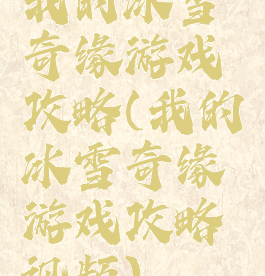 我的冰雪
奇缘游戏
攻略(我的
冰雪奇缘
游戏攻略
视频)